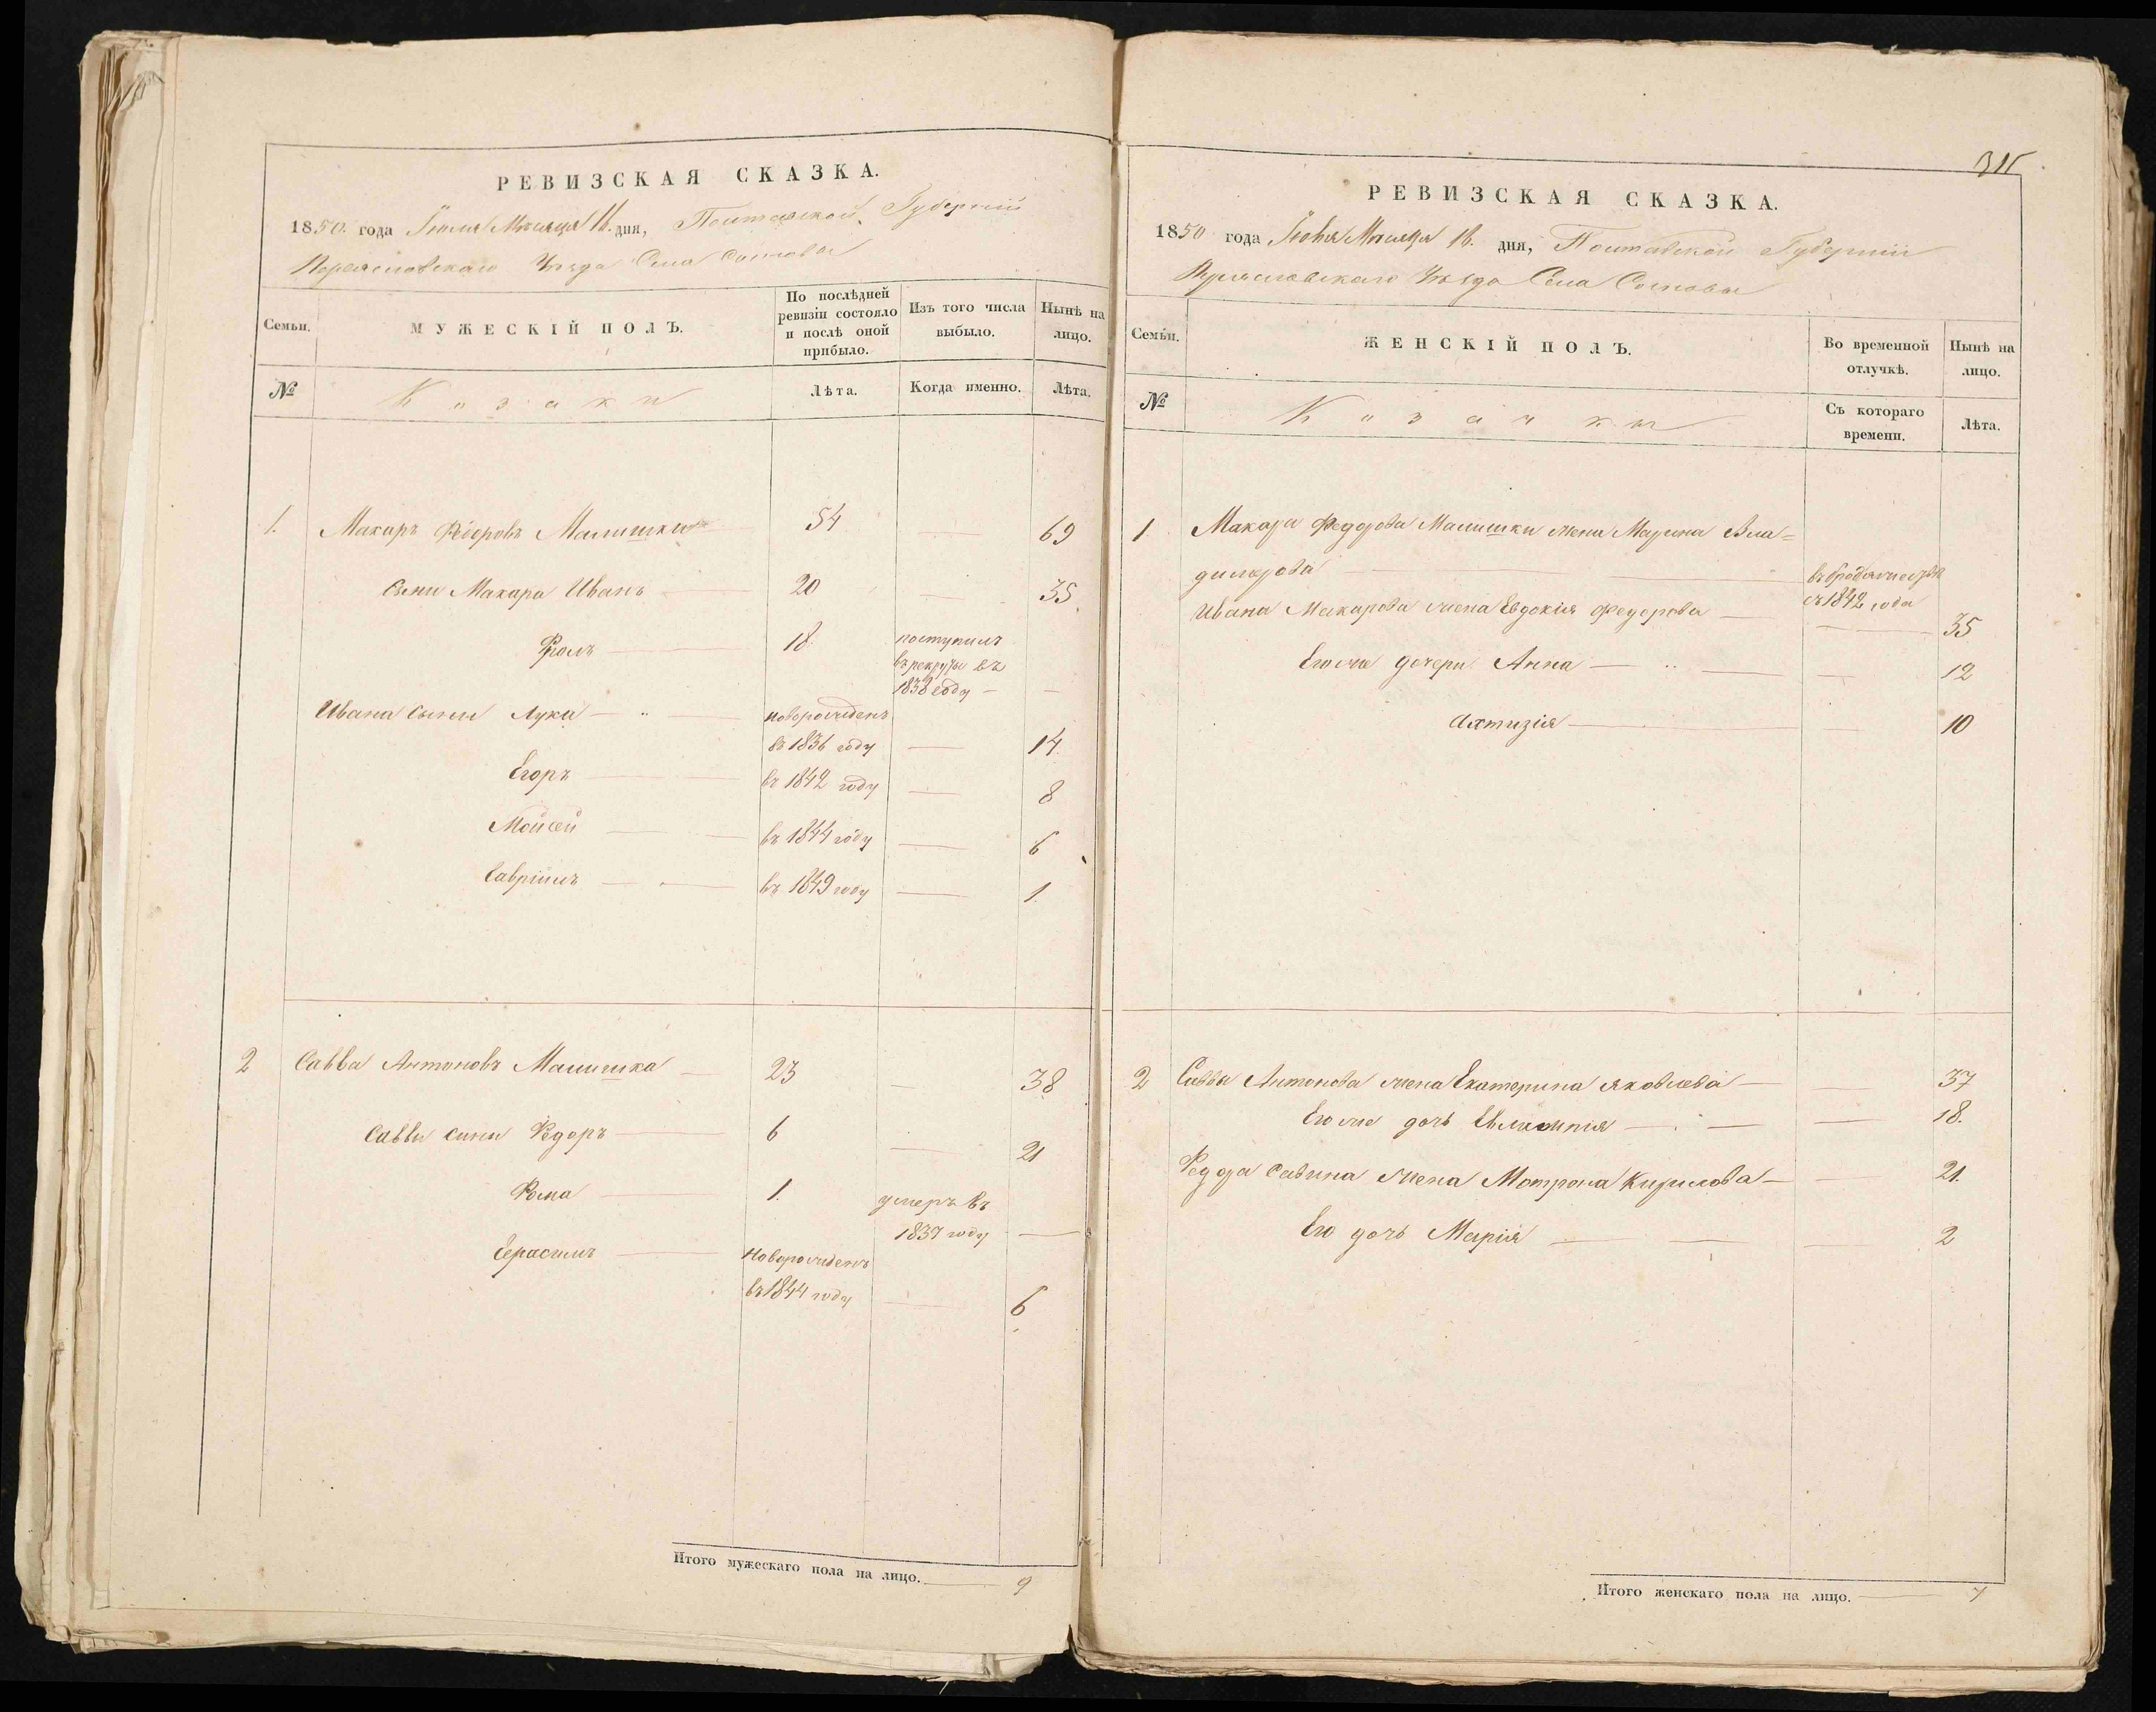 РЕВИЗСКАЯ СКАЗКА.
1850. года Іюня Мѣсяца 16. дня, Полтавской Губерніи
Переяславскаго Уѣзда Села Сосновы
Семьи.
МУЖЕСКІЙ ПОЛЪ.
По послѣдней ревизіи состояло и послѣ оной прибыло.
Изъ того числа выбыло.
Нынѣ на лицо.
№
Козаки
Лѣта.
Когда именно.
Лѣта.
1. Макаръ Федоровъ Малишка 54 — 69
Сыни Макара Иванъ — 20 — 35.
Фролъ — 18 поступилъ
въ рекруты въ
1838 году — —
Ивана Сыни Лука — новорожденъ
въ 1836 году — 14.
Егоръ — въ 1842 году — 8
Мойсей — въ 1844 году — 6
Гавріилъ — въ 1849 году — 1.
2 Савва Антоновъ Малишка — 23 — 38
Саввы сини Федоръ — 6 — 21
Фома — 1. умеръ въ
1837 году —
Герасимъ — Новорожденъ
въ 1844 году — 6
Итого мужескаго пола на лицо. — 9
РЕВИЗСКАЯ СКАЗКА.
1850 года Іюня Мѣсяца 16. дня, Полтавской Губерніи
Переяславскаго Уѣзда Села Сосновы
Семьи.
ЖЕНСКІЙ ПОЛЪ.
Во временной отлучкѣ.
Нынѣ на лицо.
№
Козачки
Съ котораго времени.
Лѣта.
1 Макара Федорова Малишки жена Марина Вла=
димерова — въ бродяжествѣ
съ 1842 года
Ивана Макарова жена Евдокія Федорова — 35
Его же дочери Анна — 12
— 10
2 Саввы Антонова жена Екатерина Яковлева — 37
Его же дочь Евлампія — 18.
Федора Савина жена Мотрона Кирилова — 21.
Его дочь Марія — 2
Итого женскаго пола на лицо. — 7